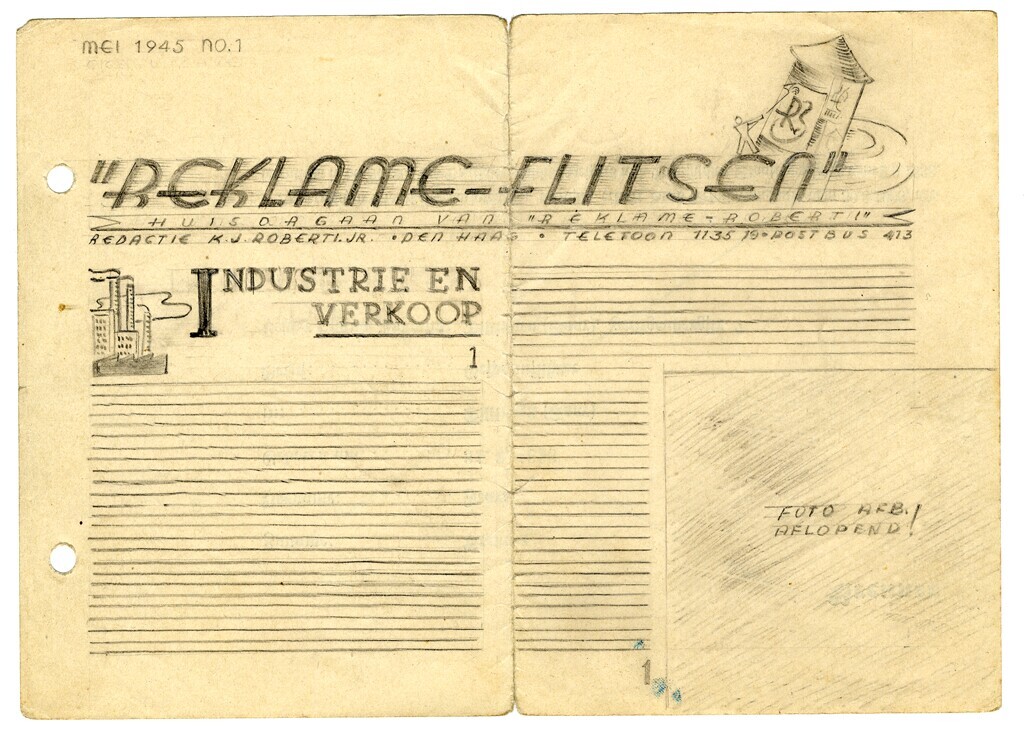 MEI 1945 NO.1
"REKLAME-FLITSEN"
HUISORGAAN VAN "REKLAME-ROBERTI"
REDACTIE K.J. ROBERTI.JR. • DEN HAAG • TELEFOON 113519 • POSTBUS 413
INDUSTRIE EN
VERKOOP
1
FOTO AFB.!
AFLOPEND!
1